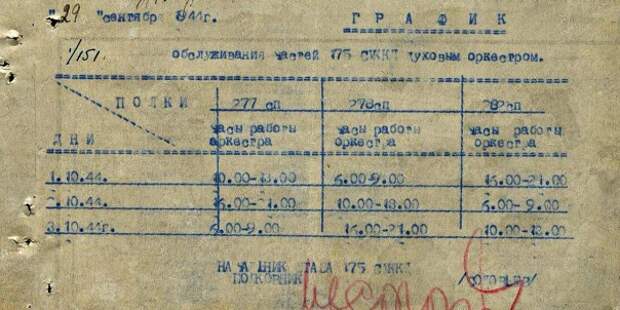 "29 "сентября 944г. ГРАФИК
1/151. обслуживания частей 175 СУККД духовым оркестром.
ПОЛКИ 277 сп 278сп 282сп
ДНИ часы работы оркестра часы работы оркестра часы работы оркестра
1.10.44. 10.00-13.00 6.00-9.00 16.00-21.00
2.10.44. 16.00-21.00 10.00-13.00 6.00- 9.00
3.10.44г. 6.00-9.00 16.00-21.00 10.00-13.00
НАЧАЛЬНИК ШТАБА 175 СУККД
ПОЛКОВНИК